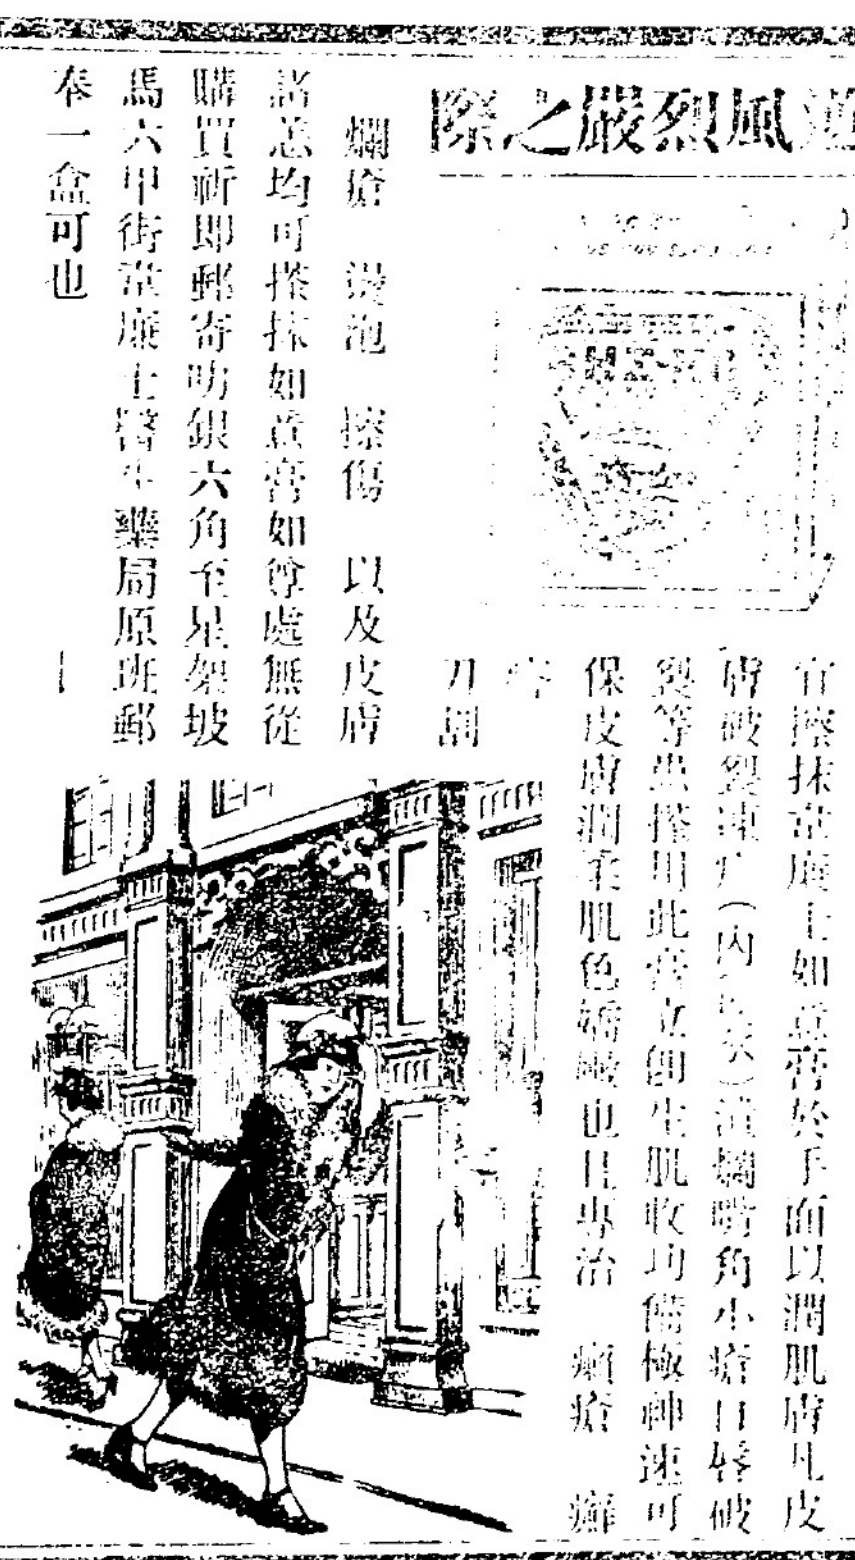 風烈嚴之際
宜擦抹韋廉士如意膏於手面以潤肌膚凡皮
膚破裂凍疒(內瘃)潰爛嘴角小瘡口唇破
裂等患搽用此膏立卽生肌收功儕極神速可
保皮膚潤柔肌色嬌嫩也且專治 瘡 癬
刀割
爛瘡 燙泡 擦傷 以及皮膚
諸恙均可搽抹如意膏如尊處無從
購買祈即郵寄叻銀六角至星架坡
馬六甲街韋廉士醫生藥局原班郵
奉一盒可也